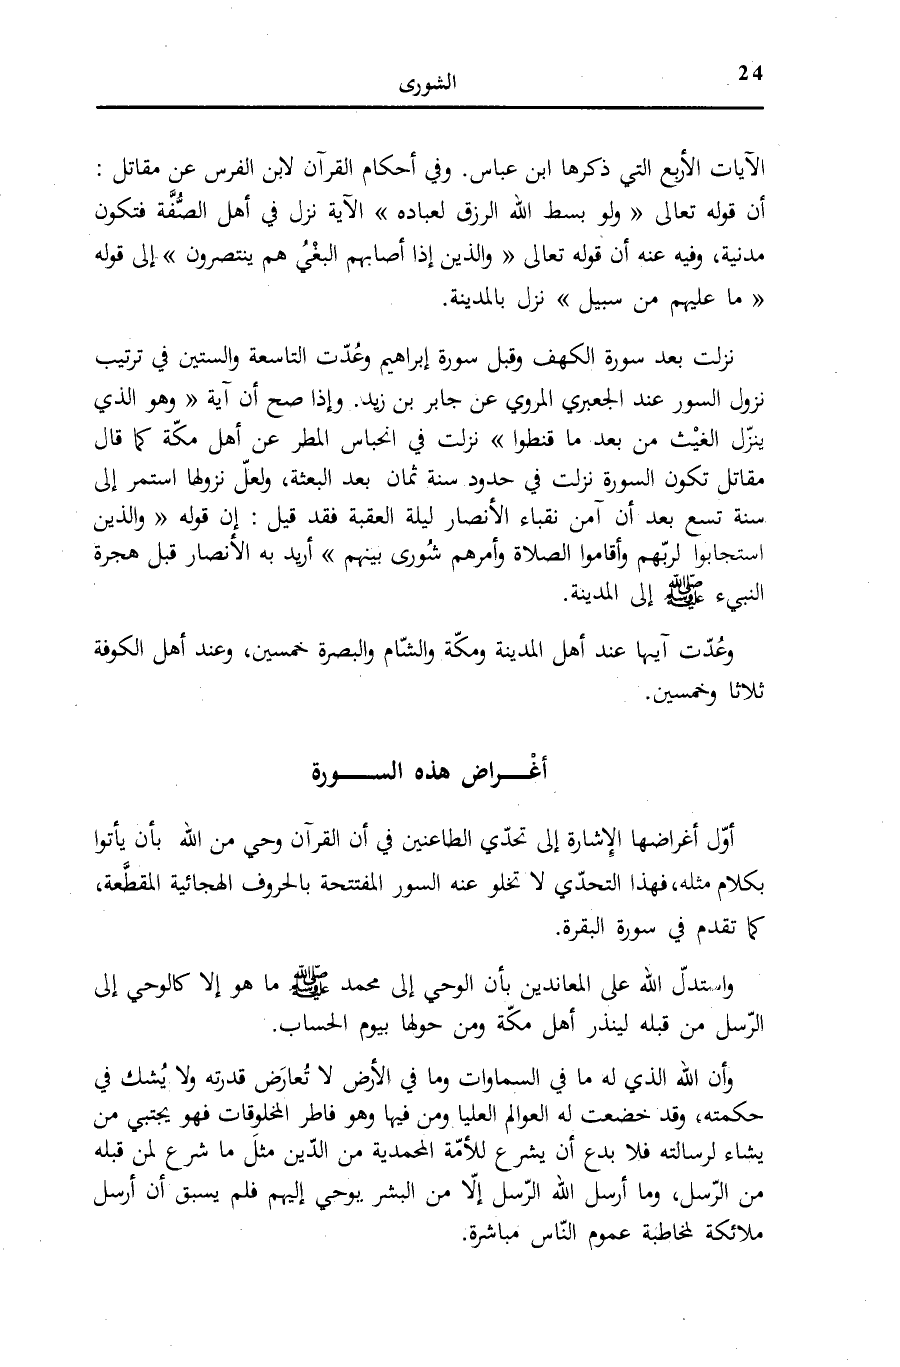 24
الشورى
الآيات الأربع التي ذكرها ابن عباس. وفي أحكام القرآن لابن الفرس عن مقاتل :
أن قوله تعالى « ولو بسط الله الرزق لعباده » الآية نزل في أهل الصُّفَّة فتكون
مدنية، وفيه عنه أن قوله تعالى « والذين إذا أصابهم البغْيُ هم ينتصرون » إلى قوله
« ما عليهم من سبيل » نزل بالمدينة.
نزلت بعد سورة الكهف وقبل سورة إبراهيم وعُدّت التاسعة والستين في ترتيب
نزول السور عند الجعبري المروي عن جابر بن زيد. وإذا صح أن آية « وهو الذي
ينزّل الغيْث من بعد ما قنطوا » نزلت في انحباس المطر عن أهل مكّة كما قال
مقاتل تكون السورة نزلت في حدود سنة ثمان بعد البعثة، ولعلّ نزولها استمر إلى
سنة تسع بعد أن آمن نقباء الأنصار ليلة العقبة فقد قيل : إن قوله « والذين
استجابوا لربّهم وأقاموا الصلاة وأمرهم شُورى بينهم » أريد به الأنصار قبل هجرة
النبيء ﷺ إلى المدينة.
وعُدّت آيها عند أهل المدينة ومكّة والشّام والبصرة خمسين، وعند أهل الكوفة
ثلاثا وخمسين.
أغْـــراض هذه الســـورة
أوّل أغراضها الإشارة إلى تحدّي الطاعنين في أن القرآن وحي من الله بأن يأتوا
بكلام مثله، فهذا التحدّي لا تخلو عنه السور المفتتحة بالحروف الهجائية المقطَّعة،
كما تقدم في سورة البقرة.
واستدلّ الله على المعاندين بأن الوحي إلى محمد ﷺ ما هو إلا كالوحي إلى
الرّسل من قبله لينذر أهل مكّة ومن حولها بيوم الحساب.
وأن الله الذي له ما في السماوات وما في الأرض لا تُعارَض قدرته ولا يُشك في
حكمته، وقد خضعت له العوالم العليا ومن فيها وهو فاطر المخلوقات فهو يجتبي من
يشاء لرسالته فلا بدع أن يشرع للأمّة المحمدية من الدّين مثلَ ما شرع لمن قبله
من الرّسل، وما أرسل الله الرّسل إلّا من البشر يوحي إليهم فلم يسبق أن أرسل
ملائكة لمخاطبة عموم النّاس مباشرة.